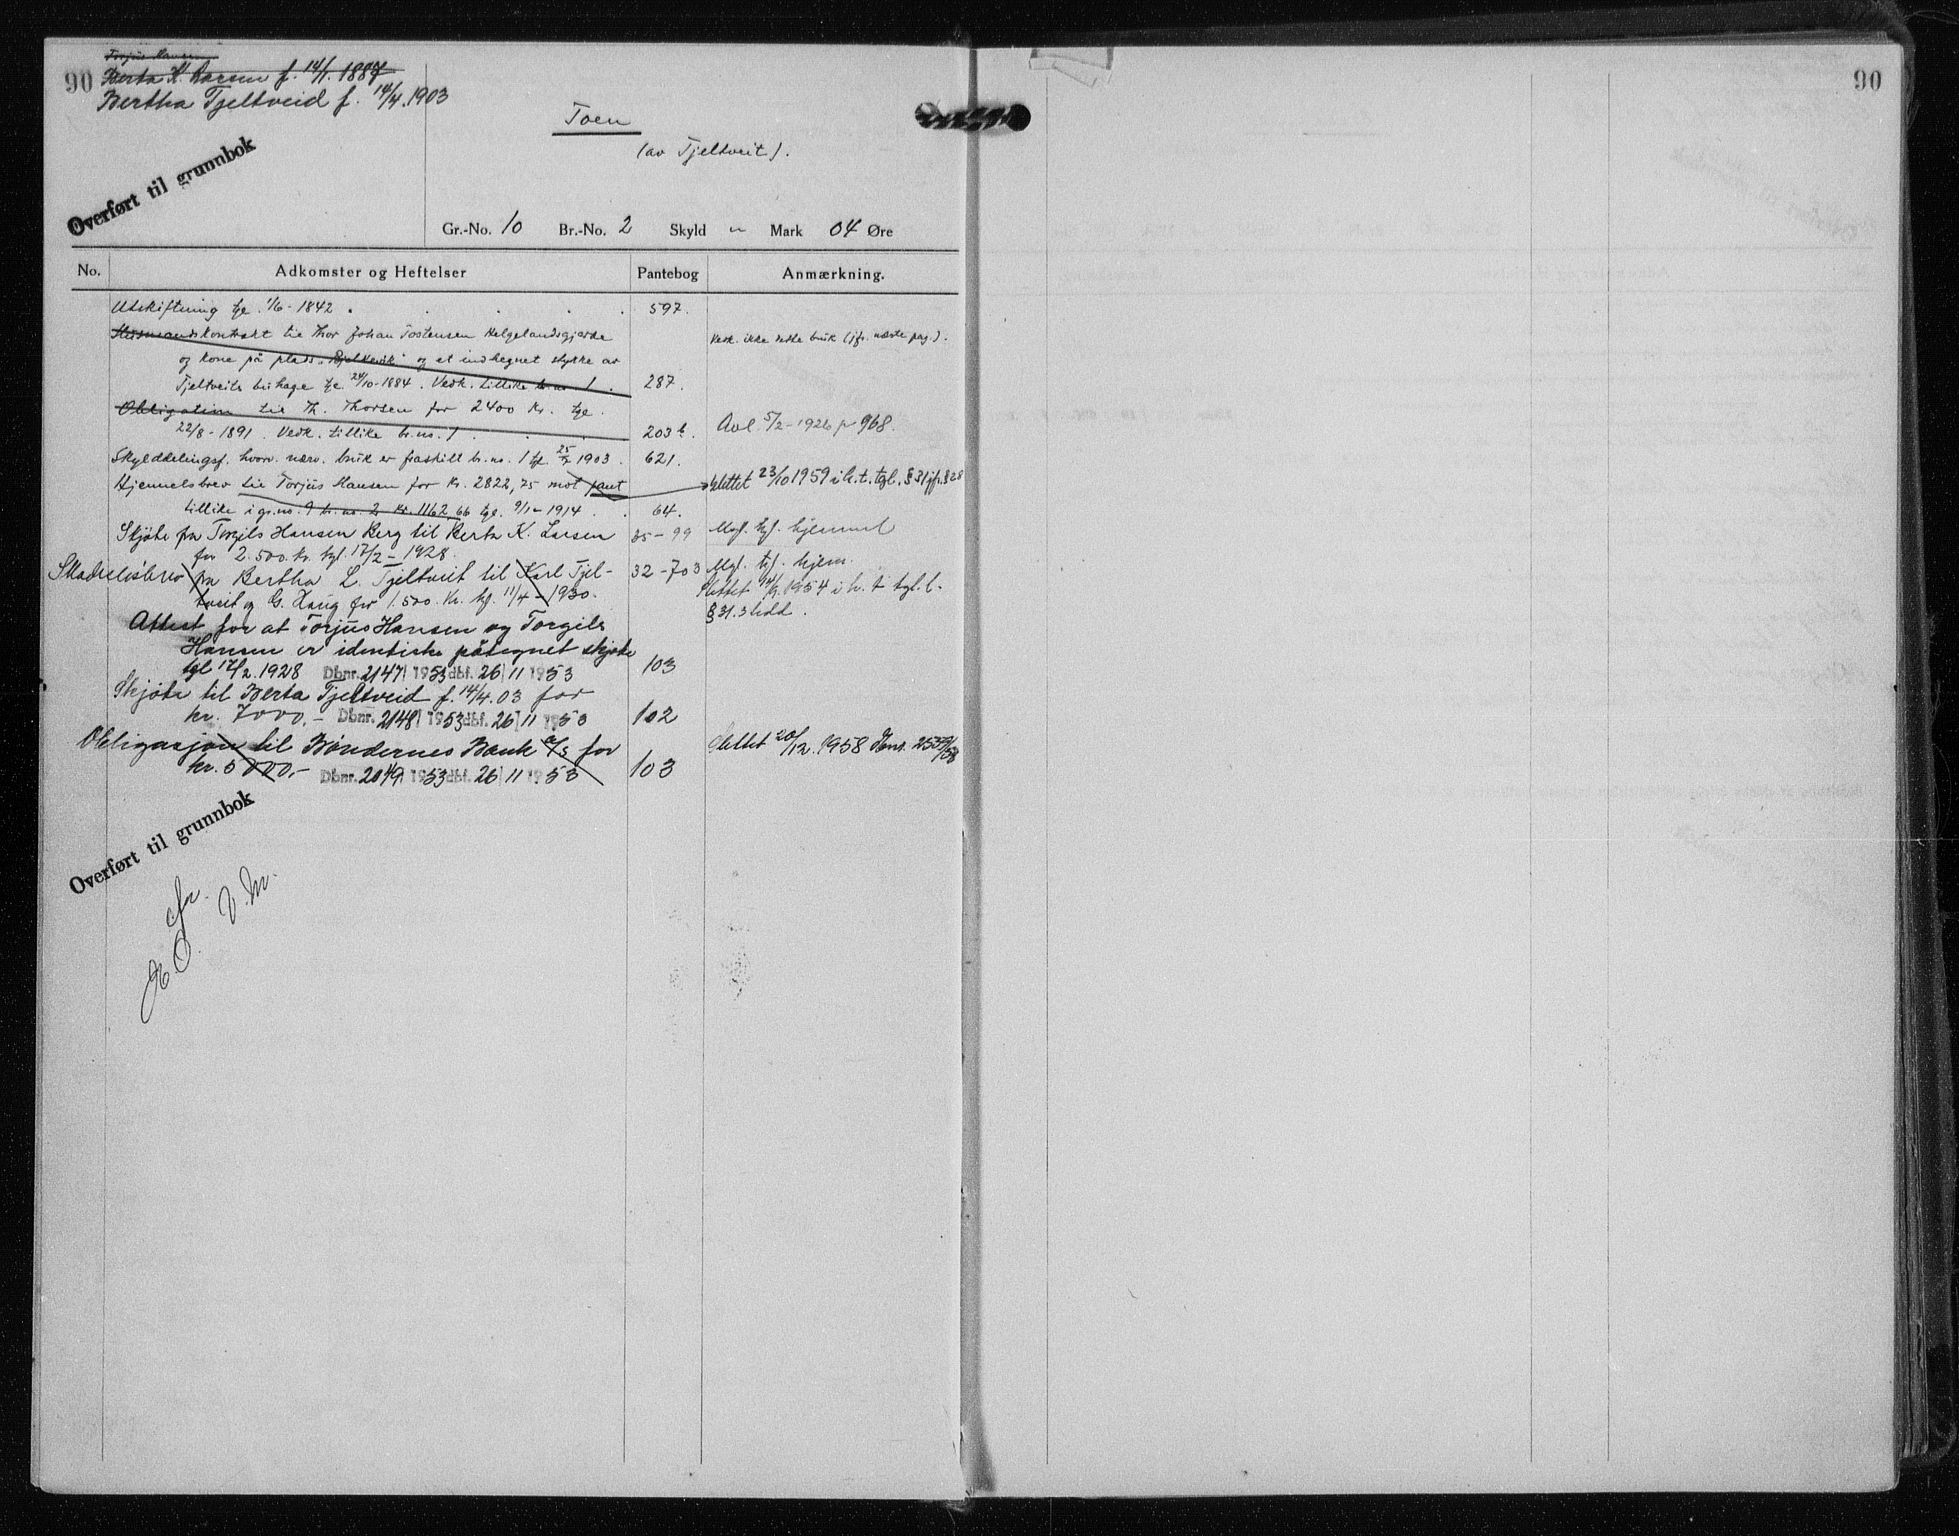 90
Torjus Hansen
Berta K. Larsen f. 14/1. 1887
Bertha Tjeltveid f. 14/4.1903
Overført til grunnbok
Toen
(av Tjeltveit).
Gr.-No. 10 Br.-No. 2 Skyld " Mark 04 Øre
No. Adkomster og Heftelser Pantebog Anmærkning.
Utskiftning tgl. 1/6-1842 . . . . . 597.
Husmandskontrakt til Thor Johan Tostensen Helgelandsgjærde Vedk. ikke dette bruk (jfr. næste pag.).
og kone på plads og et indhegnet stykke av
Tjeltveits buhage tgl. 24/10-1884. Vedk. tillike br.no. 1. 287.
Obligation til Th. Thorsen for 2400 Kr. tgl.
22/8-1891. Vedk. tillike br.no. 1 . . . 203b. Avl. 5/2-1926 p 968.
Skylddelingsf. hvorv. nærv. bruk er fraskilt br.no. 1 tgl. 25/2 1903. 621.
Hjemmelsbrev til Torjus Hansen for Kr. 2822,75 mot pant slettet 23/10 1959 i h. t. tgl. § 31 jfr. § 28
tillike i gr.no. 9 br.no. 2 Kr. 1162,66 tgl. 9/1-1914 . . 64.
Skjöte fra Torgils Hansen Berg til Berta K. Larsen 35-99 Mgl. tgl. hjemmel
for 2.500 kr. tgl. 17/2-1928.
Skadesløsbrev fra Bertha L. Tjeltveit til Karl Tjel- 32-703 Mgl. tgl. hjem.
tveit og G. Haug for 1.500. Kr. tgl. 11/4-1930. Slettet 1954 i h. t tgl. l.
§ 31. 3 ledd.
Attest for at Torjus Hansen og Torgils
Hansen er identiske påtegnet skjøte
tgl 17/2.1928 Dbnr. 2147 | 1953 dbf. 26 | 11 1953 103
Skjøte til Berta Tjeltveid f. 14/4.03 for
kr. 7000,- Dbnr. 2148 | 1953 dbf. 26 | 11 1953 102
Obligasjon til Bøndernes Bank a/s for Slettet 20/12.1958 Dbnr. 2539/58
kr. 5000,- Dbnr. 2049 | 1953 dbf. 26 | 11 1953 103
Overført til grunnbok
V.M.
90